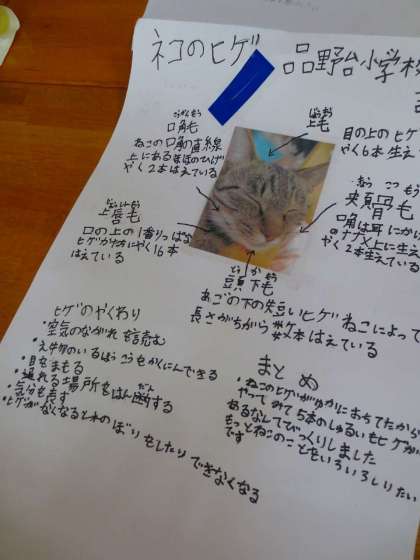 ネコのヒゲ
品野台小学校
こうかくもう
口角毛
ねこの口角の直線
上にあるほほのひげ
やく2本はえている
じょうもう
上毛
目の上のヒゲ
やく6本生え
じょうしんもう
上唇毛
口の上の1番りっぱな
ヒゲかた方にやく16本
はえている
きょうこつもう
頰骨毛
口角は耳にか
のナナメ上に生え
やく2本生えてい
とうかもう
頭下毛
あごの下の短いヒゲねこによって
長さがちがう やく
数本はえている
ヒゲのやくわり
・空気のながれを読む
・えもののいるほうこうをかくにんできる
・目をまもる
・通れる場所をはん断する
・気分を表す
・ヒゲがなくなると木のぼりをしたりできなくなる
まとめ
・ねこのヒゲがゆかにおちてたから
やってみて5本のしゅるいもヒゲが
あるなんてびっくりしました
もっとねこのことをいろいろしりたい
です